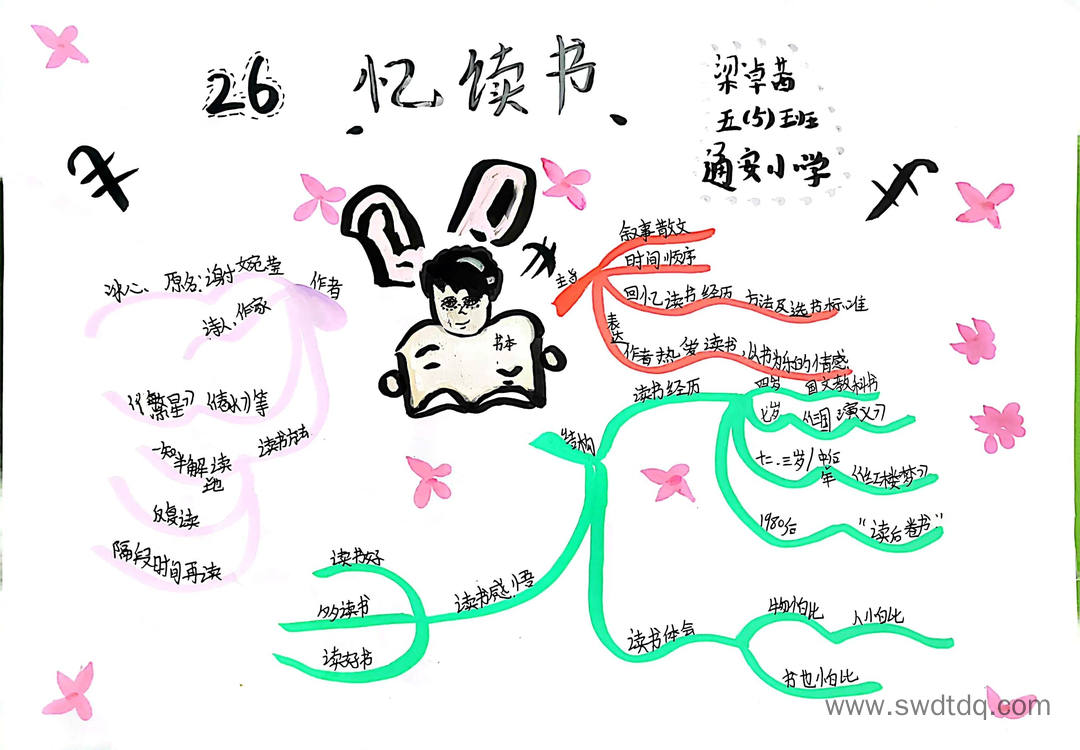 26 忆读书
梁卓茜
五(5)班
通安小学
书本
作者
冰心、原名:谢婉莹
诗人,作家
《繁星》《春水》等
读书方法
一知半解读
地
反复读
隔段时间再读
叙事散文
时间顺序
回忆读书经历 方法及选书标准
表达
作者热爱读书,以书为乐的情感
结构
读书经历
四岁 国文教科书
七岁 《三国演义》
十二、三岁/中年 《红楼梦》
1980后
读书感悟
读书好
多读书
读好书
读书体会
物怕比 人怕比
书也怕比
www.swdtdq.com